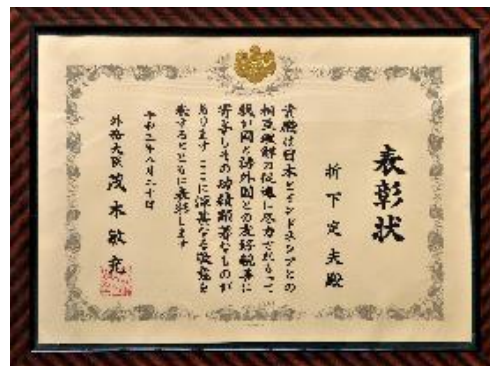 表彰状
折下定夫殿
貴殿は日本とインドネシアとの
相互理解の促進に尽力されもって
我が国と諸外国との友好親善に
寄与しその功績顕著なものが
あります ここに深甚なる敬意を
表するとともに表彰します
令和三年八月二十日
外務大臣 茂木敏充